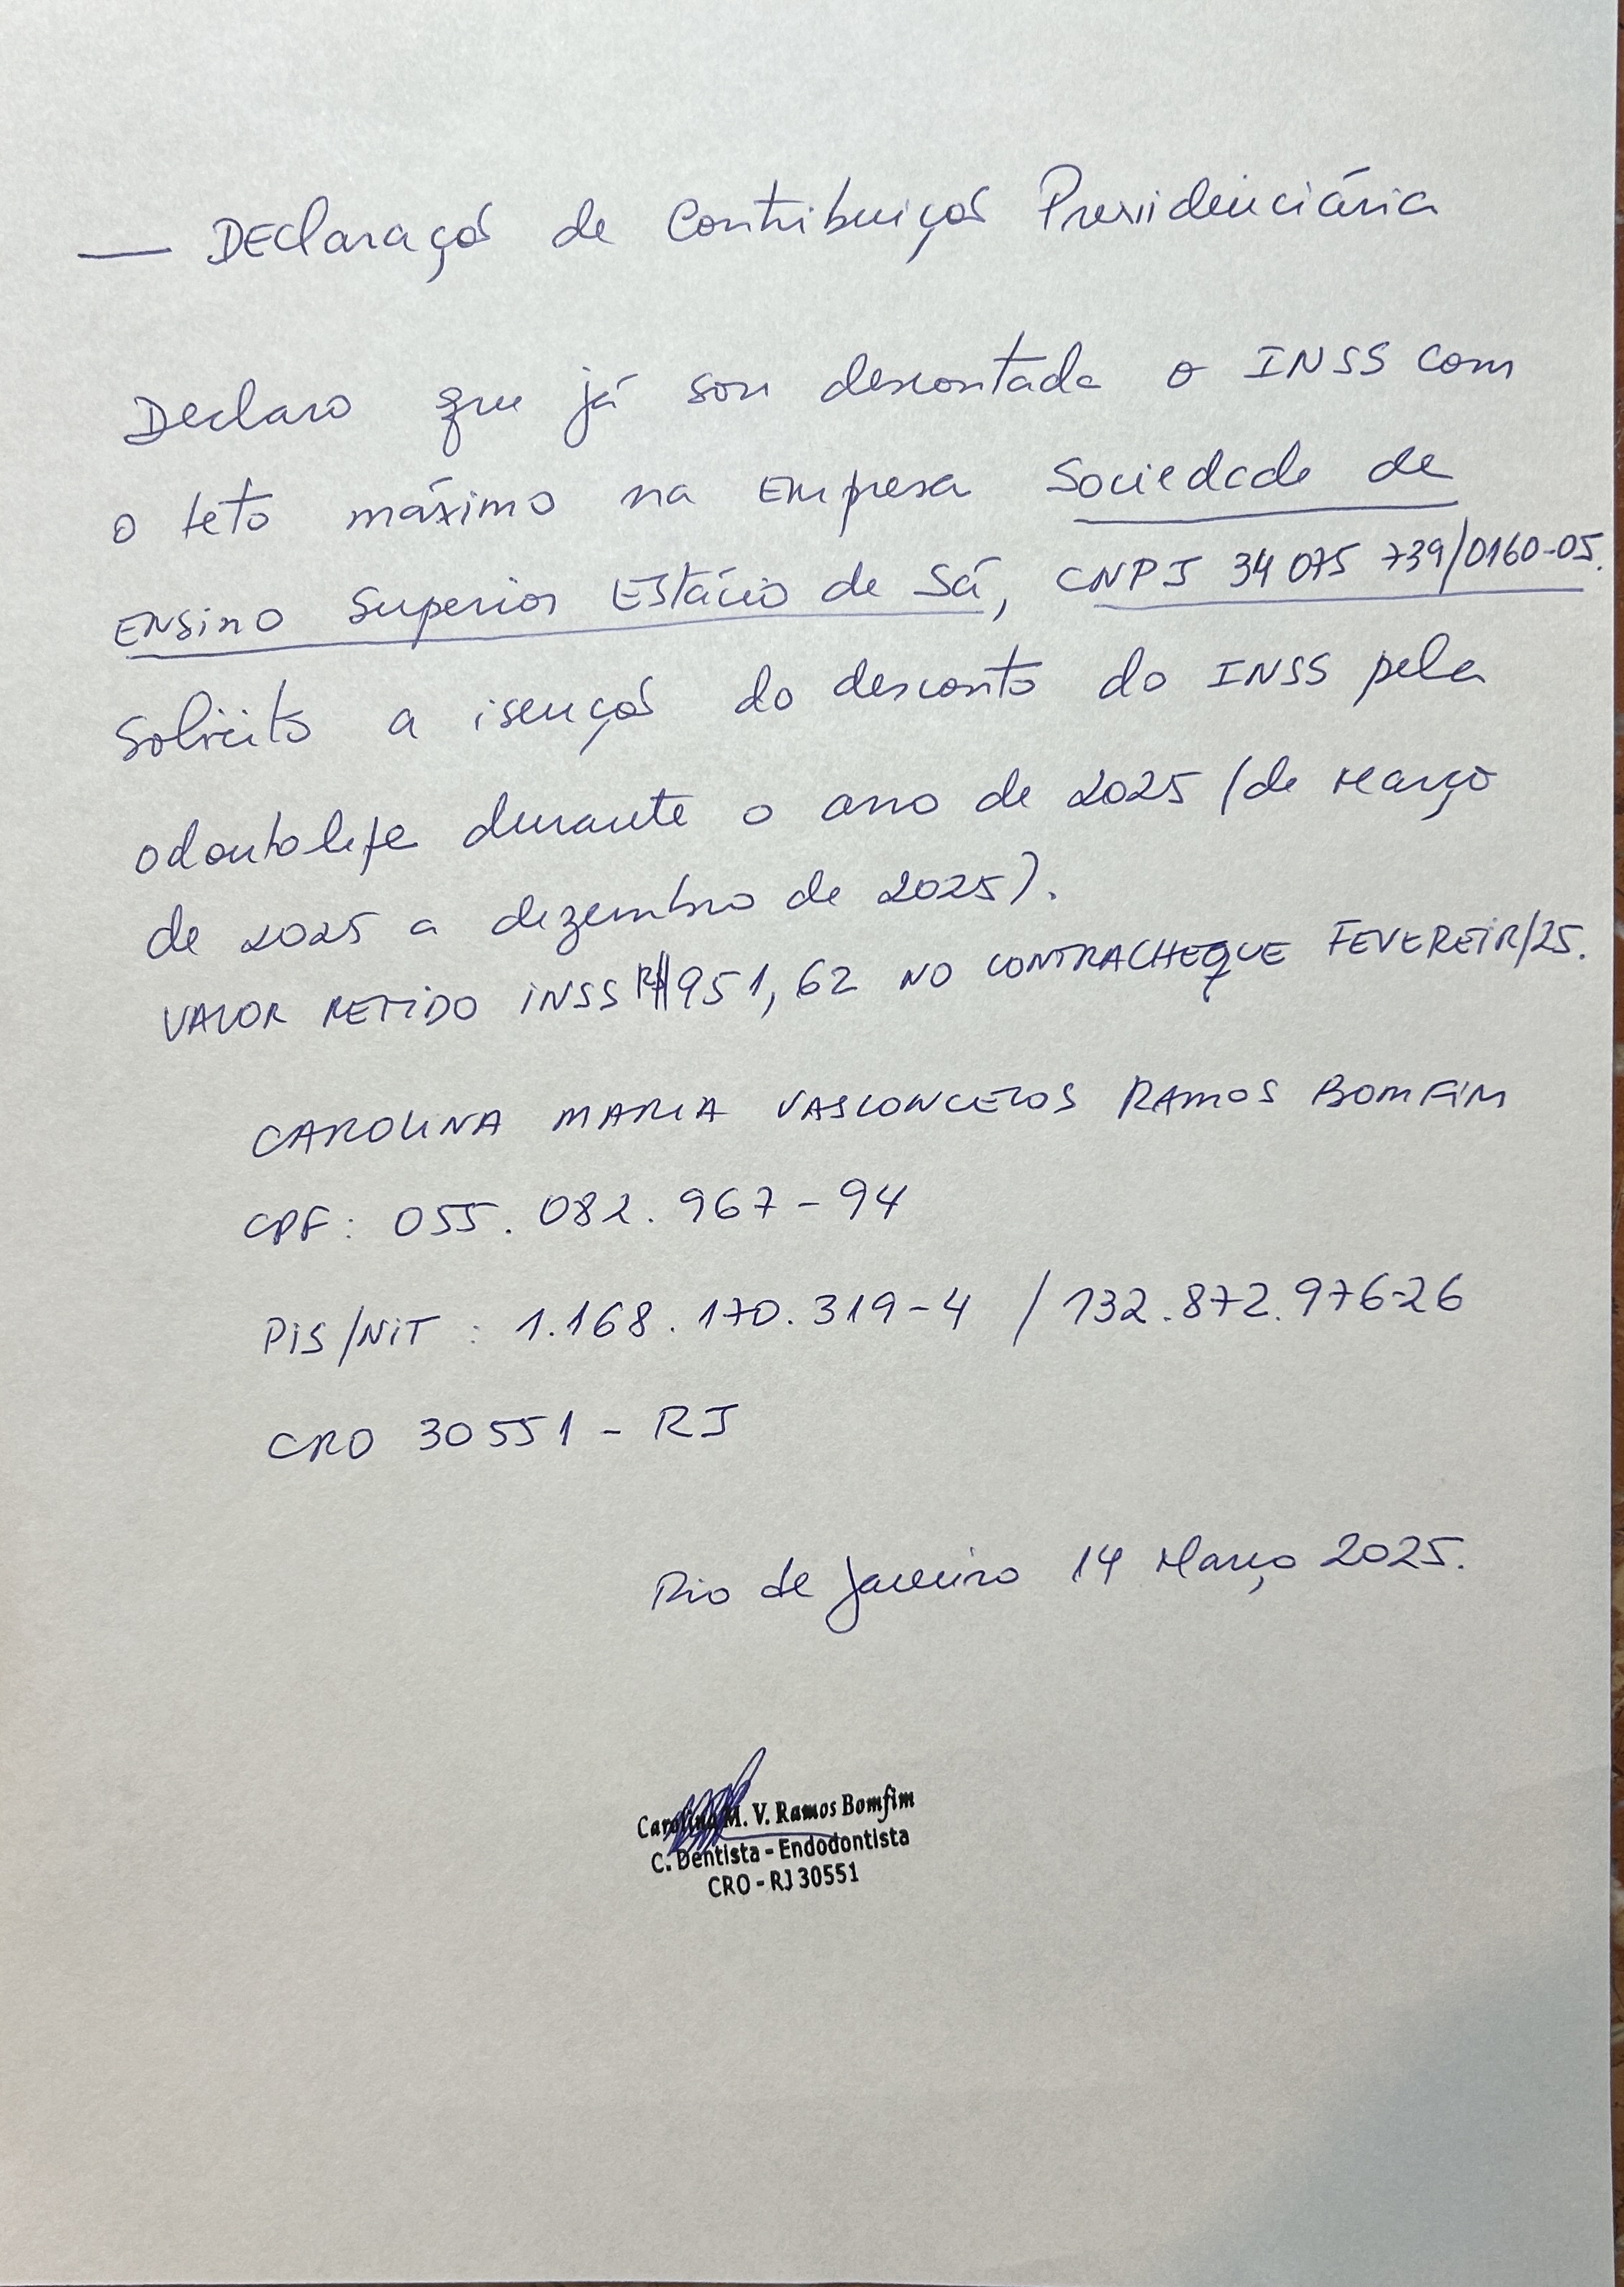 — Declaração de Contribuição Previdenciária
Declaro que já sou descontada o INSS com
o teto máximo na Empresa Sociedade de
Ensino Superior Estácio de Sá, CNPJ 34 075 739/0160-05.
Solicito a isenção do desconto do INSS pela
odontolife durante o ano de 2025 (de Março
de 2025 a dezembro de 2025).
VALOR RETIDO INSS R$ 951,62 NO CONTRACHEQUE FEVEREIR/25.
CAROLINA MARIA VASCONCELOS RAMOS BOMFIM
CPF: 055.082.967-94
PIS/NIT : 1.168.170.319-4 / 132.872.976-26
CRO 30551 - RJ
Rio de Janeiro 14 Março 2025.
Carolina M. V. Ramos Bomfim
C. Dentista - Endodontista
CRO - RJ 30551